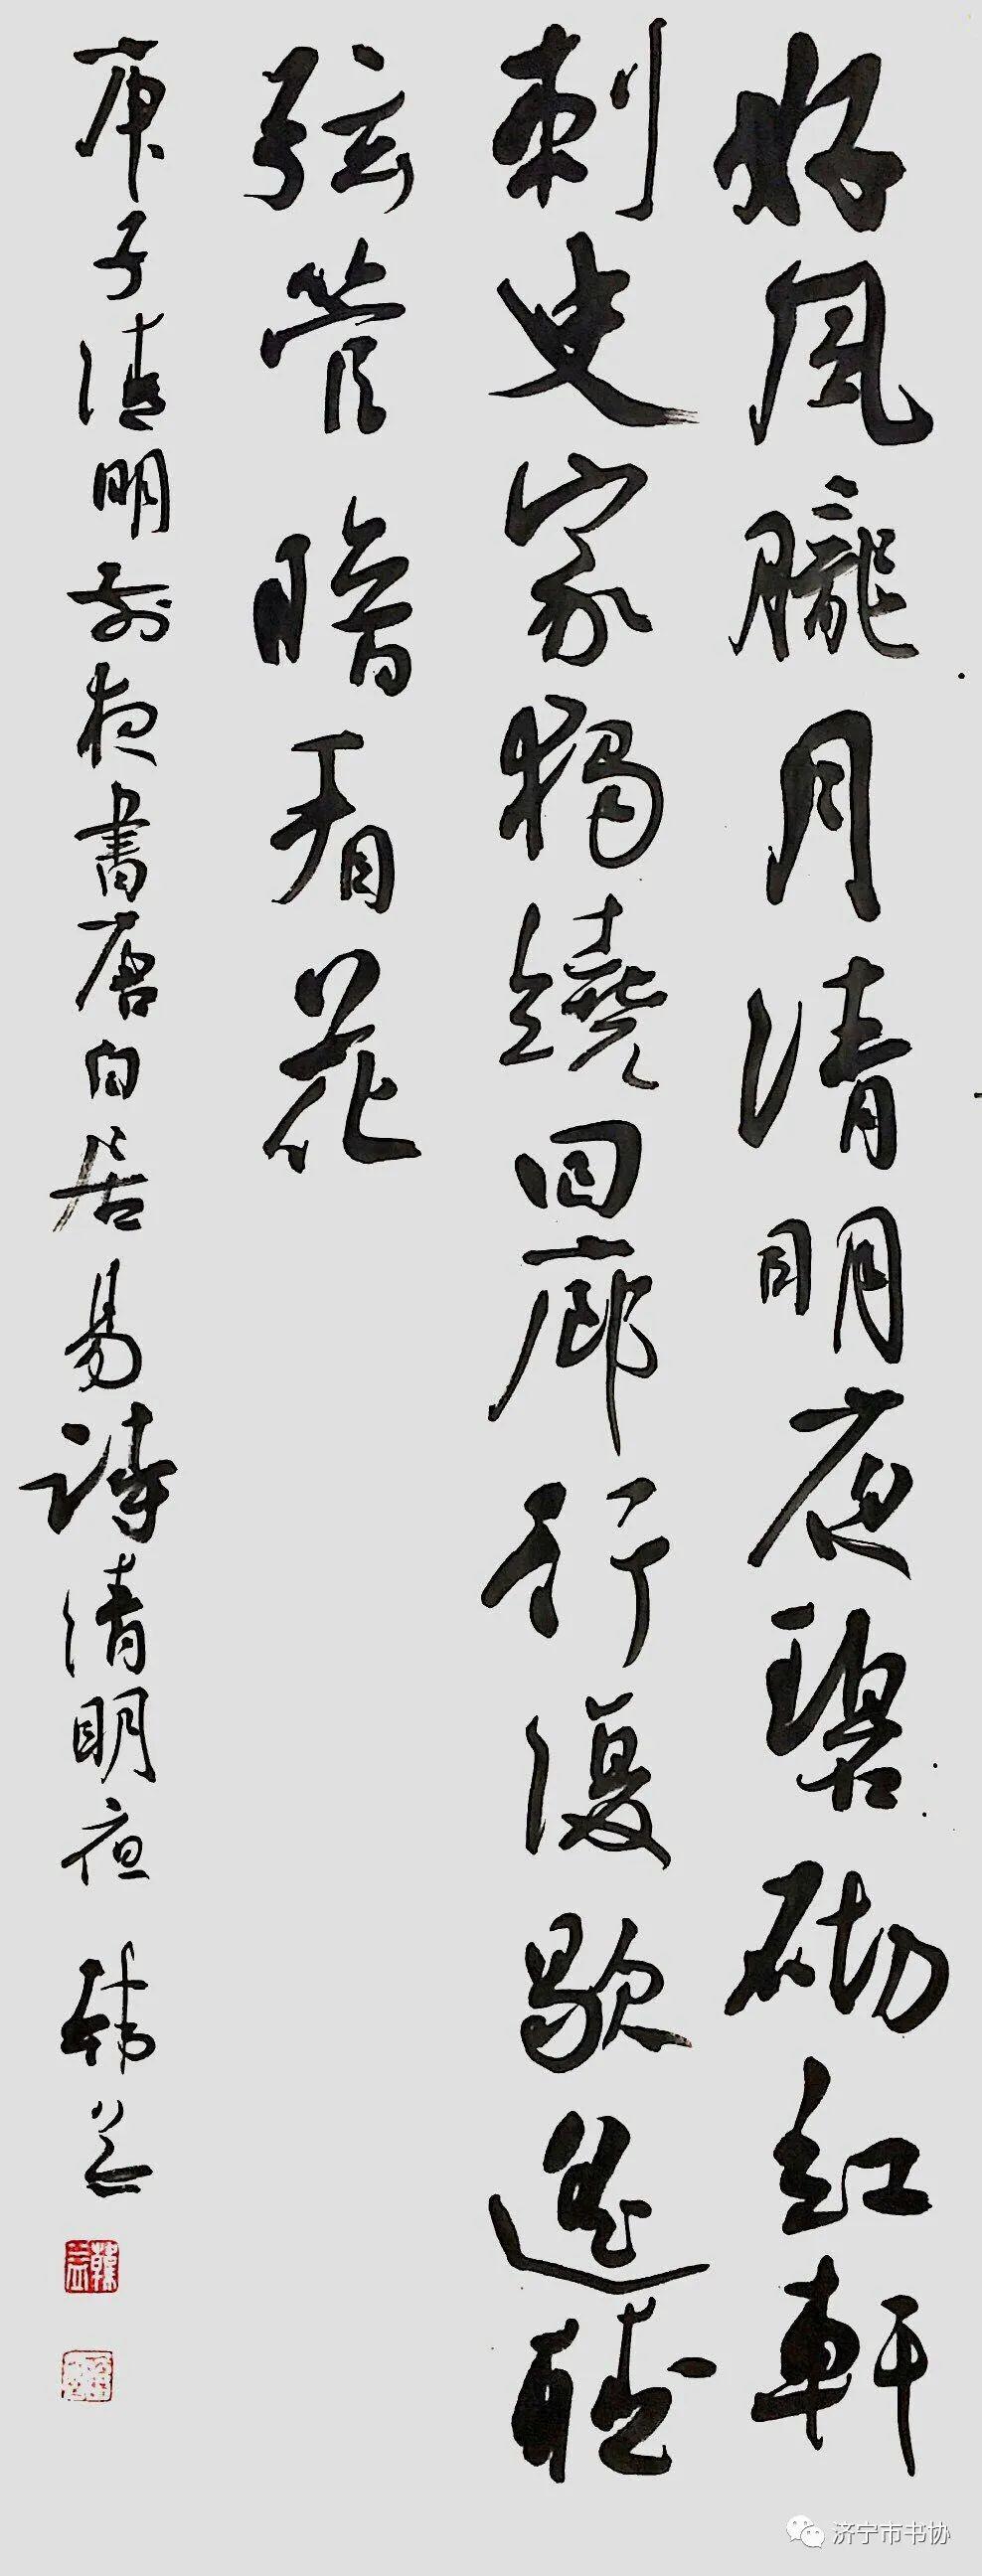 好風朧月清明夜碧砌紅軒
刺史家獨繞回廊行復歇遥聽
弦管暗看花
庚子清明前夜書唐白居易詩清明夜 韩益
济宁市书协